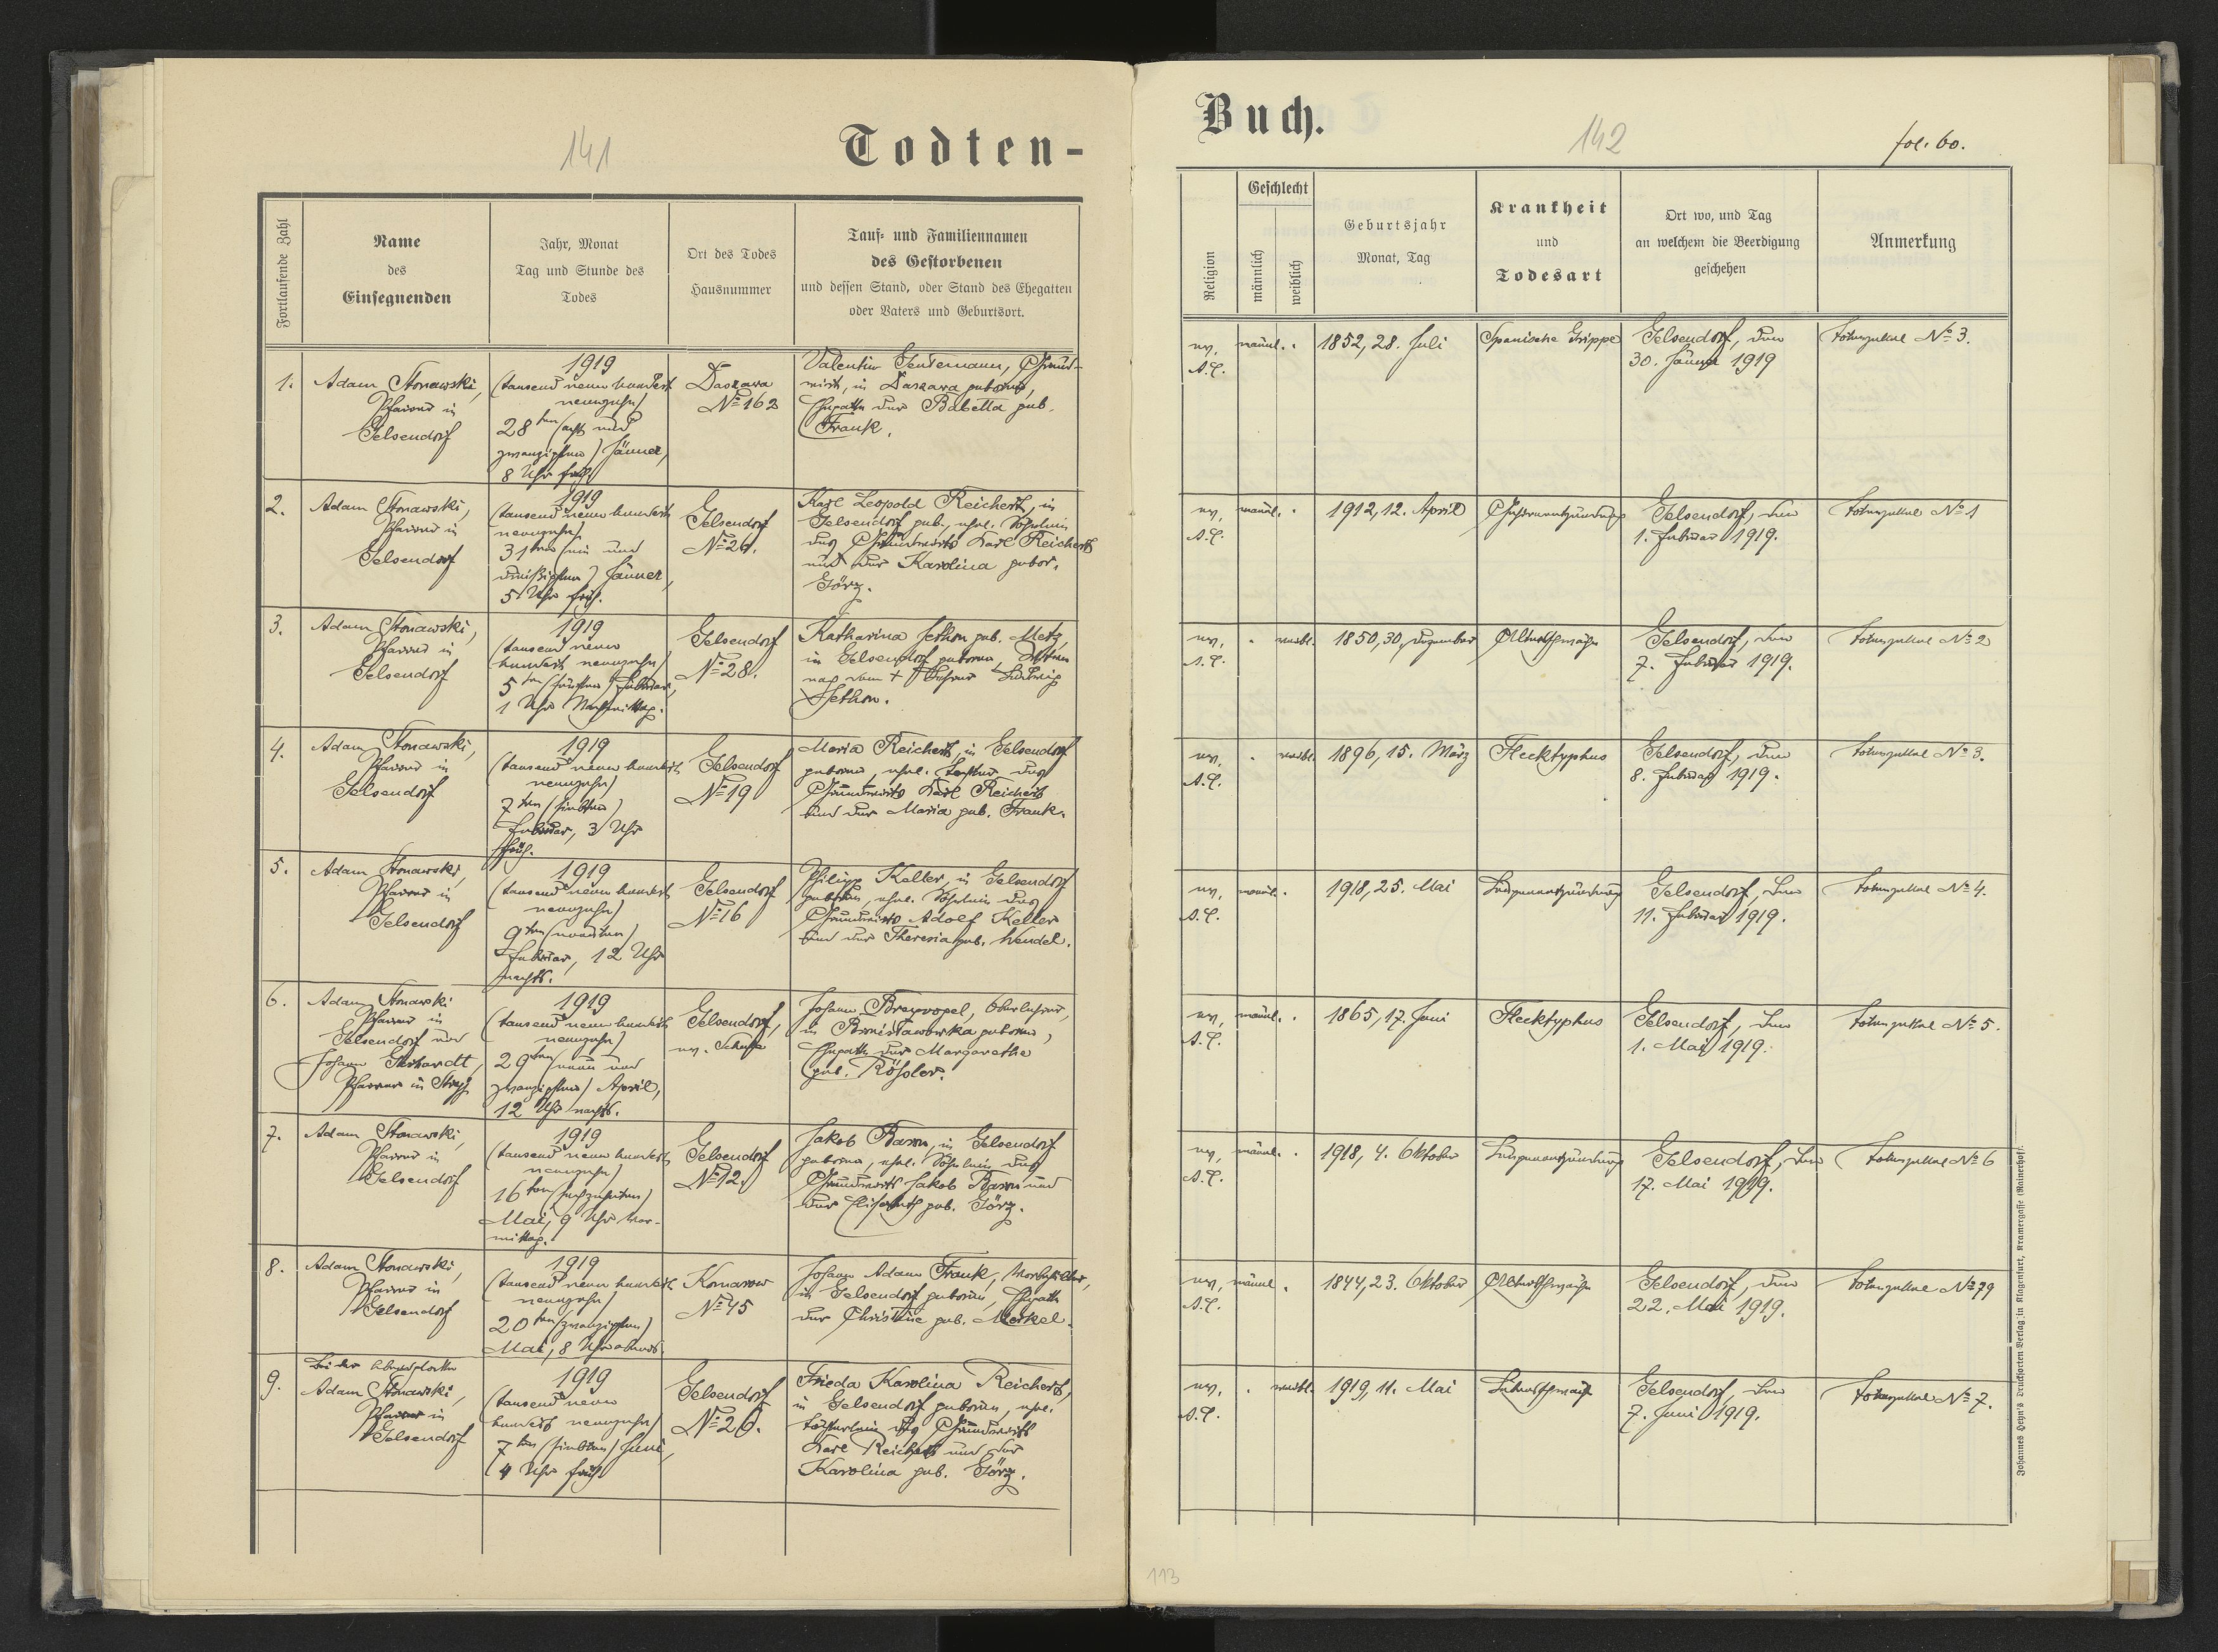 141
Todten-
Fortlaufende Zahl
Name
des
Einsegnenden
Jahr, Monat
Tag und Stunde des
Todes
Ort des Todes
Hausnummer
Tauf- und Familiennamen
des Gestorbenen
und dessen Stand, oder Stand des Ehegatten
oder Vaters und Geburtsort.
1.
Adam Stonawski,
Pfarrer in
Gelsendorf
1919
(tausend neun hundert
neunzehn)
28ten (acht und
zwanzigsten) Jänner,
8 Uhr früh
Daszawa
№ 162
Valentin Gendemann, Grund-
wirt, in Daszawa geboren,
Ehegatte der Babetta geb.
Frank.
2.
Adam Stonawski,
Pfarrer in
Gelsendorf
1919
(tausend neun hundert
neunzehn)
31ten (ein und
dreißigsten) Jänner,
5 Uhr früh.
Gelsendorf
№ 26.
Karl Leopold Reichert, in
Gelsendorf geb., ehel. Söhnlein
des Grundwirts Karl Reichert
und der Karolina gebor.
Görz.
3.
Adam Stonawski,
Pfarrer in
Gelsendorf
1919
(tausend neun
hundert neunzehn)
5ten (fünften) Februar,
1 Uhr Nachmittag.
Gelsendorf
№ 28.
Katharina Jethon geb. Metz,
in Gelsendorf geboren, Witwe
nach dem + Lehrer Ludwig
Jethon.
4.
Adam Stonawski,
Pfarrer in
Gelsendorf
1919
(tausend neun hundert
neunzehn)
7ten (siebten)
Februar, 3 Uhr
früh.
Gelsendorf
№ 19
Maria Reichert, in Gelsendorf
geboren, ehel. Tochter des
Grundwirts Karl Reichert
und der Maria geb. Frank.
5.
Adam Stonawski,
Pfarrer in
Gelsendorf
1919
(tausend neun hundert
neunzehn)
9ten (neunten)
Februar, 12 Uhr
nachts.
Gelsendorf
№ 16
Philipp Keller, in Gelsendorf
geboren, ehel. Söhnlein des
Grundwirts Adolf Keller
und der Theresia geb. Wendel.
6.
Adam Stonawski
Pfarrer in
Gelsendorf und
Johann Gerhardt,
Pfarrer in Stryj
1919
(tausend neun hundert
neunzehn)
29ten (neun und
zwanzigsten) April,
12 Uhr nachts.
Gelsendorf,
ev. Schule
Johann Oberlehrer,
in Bronisławowka geboren,
Ehegatte der Margarethe
geb. Rößler.
7.
Adam Stonawski,
Pfarrer in
Gelsendorf
1919
(tausend neun hundert
neunzehn)
16ten (sechzehnten)
Mai, 9 Uhr Vor-
mittag.
Gelsendorf
№ 12.
Jakob Baron, in Gelsendorf
geboren, ehel. Söhnlein des
Grundwirts Jakob Baron und
der Elisabeth geb. Görz.
8.
Adam Stonawski,
Pfarrer in
Gelsendorf
1919
(tausend neun hundert
neunzehn)
20ten (zwanzigsten)
Mai, 8 Uhr abends.
Komarow
№ 45
Johann Adam Frank,
in Gelsendorf geboren, Ehegatte
der Christine geb. Merkel.
9.
Adam Stonawski,
Pfarrer in
Gelsendorf
1919
(tausend neun
hundert neunzehn)
7ten (siebten) Juni,
4 Uhr früh
Gelsendorf
№ 26.
Frieda Karolina Reichert,
in Gelsendorf geboren, ehel.
Töchterlein des Grundwirts
Karl Reichert und der
Karolina geb. Görz.
Buch.
142
fol. 60.
Religion
Geschlecht
männlich
weiblich
Geburtsjahr
Monat, Tag
Krankheit
und
Todesart
Ort wo, und Tag
an welchem die Beerdigung
geschehen
Anmerkung
ev. männl. 1852, 28. Juli Spanische Grippe Gelsendorf, den Totenzettel № 3.
A.C. 30. Jänner 1919
ev. männl. 1912, 12. April Gehirnentzündung Gelsendorf, den Totenzettel № 1
A.C. 1. Februar 1919.
ev. weibl. 1850, 30. Dezember Altersschwäche Gelsendorf, den Totenzettel № 2
A.C. 7. Februar 1919.
ev. weibl. 1896, 15. März Flecktyphus Gelsendorf, den Totenzettel № 3.
A.C. 8. Februar 1919.
ev. männl. 1918, 25. Mai Lungenentzündung Gelsendorf, den Totenzettel № 4.
A.C. 11. Februar 1919.
ev. männl. 1865, 17. Juni Flecktyphus Gelsendorf, den Totenzettel № 5.
A.C. 1. Mai 1919.
ev. männl. 1918, 4. Oktober Lungenentzündung Gelsendorf, den Totenzettel № 6
A.C. 17. Mai 1919.
ev. männl. 1844, 23. Oktober Altersschwäche Gelsendorf, den Totenzettel № 79
A.C. 22. Mai 1919.
ev. weibl. 1919, 11. Mai Lebensschwäche Gelsendorf, den Totenzettel № 7.
A.C. 7. Juni 1919.
Johannes Heyn's Drucksorten Verlag in Klagenfurt, Kramergasse (Rainerhof).
113